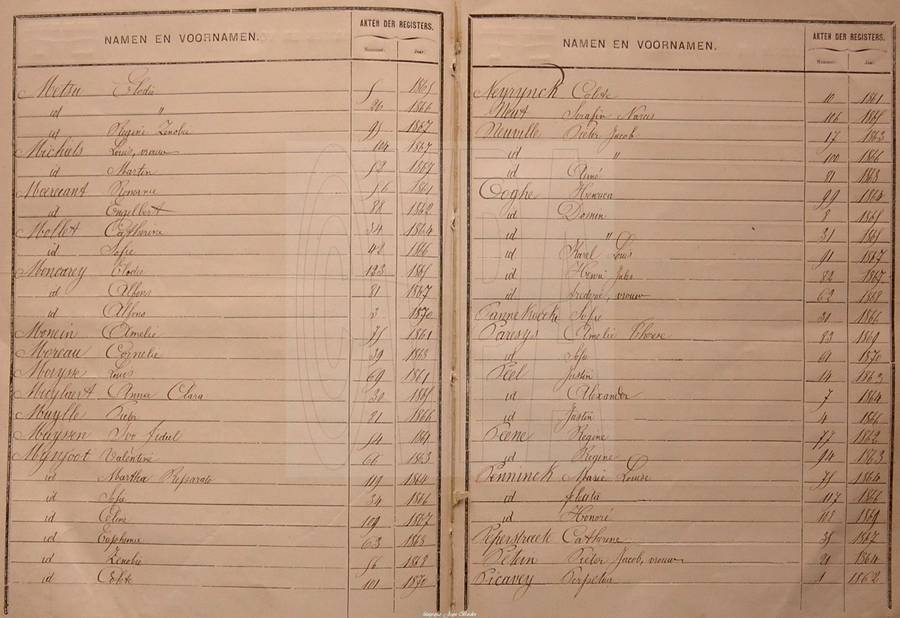 NAMEN EN VOORNAMEN. AKTEN DER REGISTERS.
Nummer. Jaar.
Metsu Elodie 5 1865
id " 26 1866
id Regine Zenobie 95 1867
Michals Louis, vrouw 104 1867
id Martin 52 1869
Romanie 56 1861
id Engelbert 88 1862
Mollet Catherine 34 1864
id Sofie 42 1866
Moncarey Elodie 123 1865
id Alfons 81 1867
id Alfons 3 1870
Monein Amelie 75 1861
Moreau Cornelie 39 1863
Moryse Louis 69 1861
Anna Clara 30 1865
Muylle Pieter 21 1866
Muysen Ivo Fidel 54
Mynjoot Valentine 66 1863
id Martha Reparate 119 1864
id Sofie 34 1866
id Céline 109 1867
id Euphemie 63 1868
id Zenobie 56 1869
id Celeste 101 1870
NAMEN EN VOORNAMEN. AKTEN DER REGISTERS.
Nummer. Jaar.
Neyrynck Celeste 10 1861
Serafin Narcis 106 1865
Neuville Pieter Jacob 17 1863
id " 100 1866
id Aimé 81 1868
Ooghe Henrica 99 1864
id 8 1865
id " 31 1865
id Karel Louis 91 1867
id Henri Jules 82 1867
id vrouw 62 1868
Pannekoecke Sofie 30 1866
Paresys Amelie 83 1869
id Sofie 61 1870
Peel Justin 14 1863
id Alexander 7 1864
id Justin 4 1866
Peene Regine 77 1862
id Regine 94 1863
Penninck Marie Louise 75 1864
id Felicité 117 1866
id Honoré 1869
Peperstraete Catharine 35 1867
Petein Pieter Jacob, vrouw 21 1864
Picavey Perpetua 1 1862